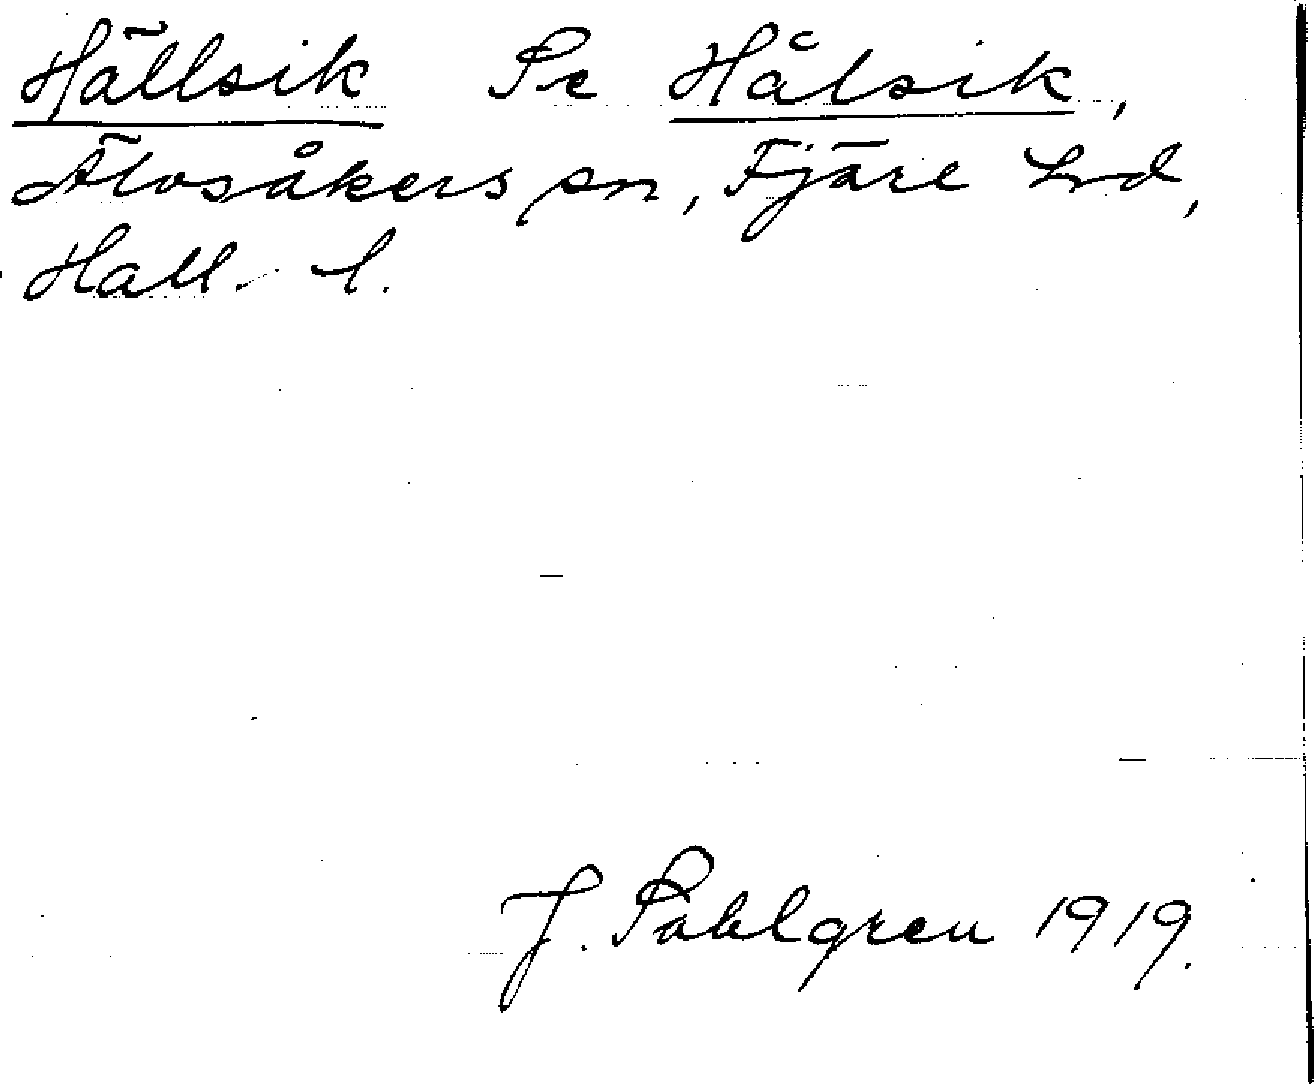 Hällsik Se Hålsik,
Älvsåkers sn, Fjäre hrd,
Hall. l.
J. Sahlgren 1919.